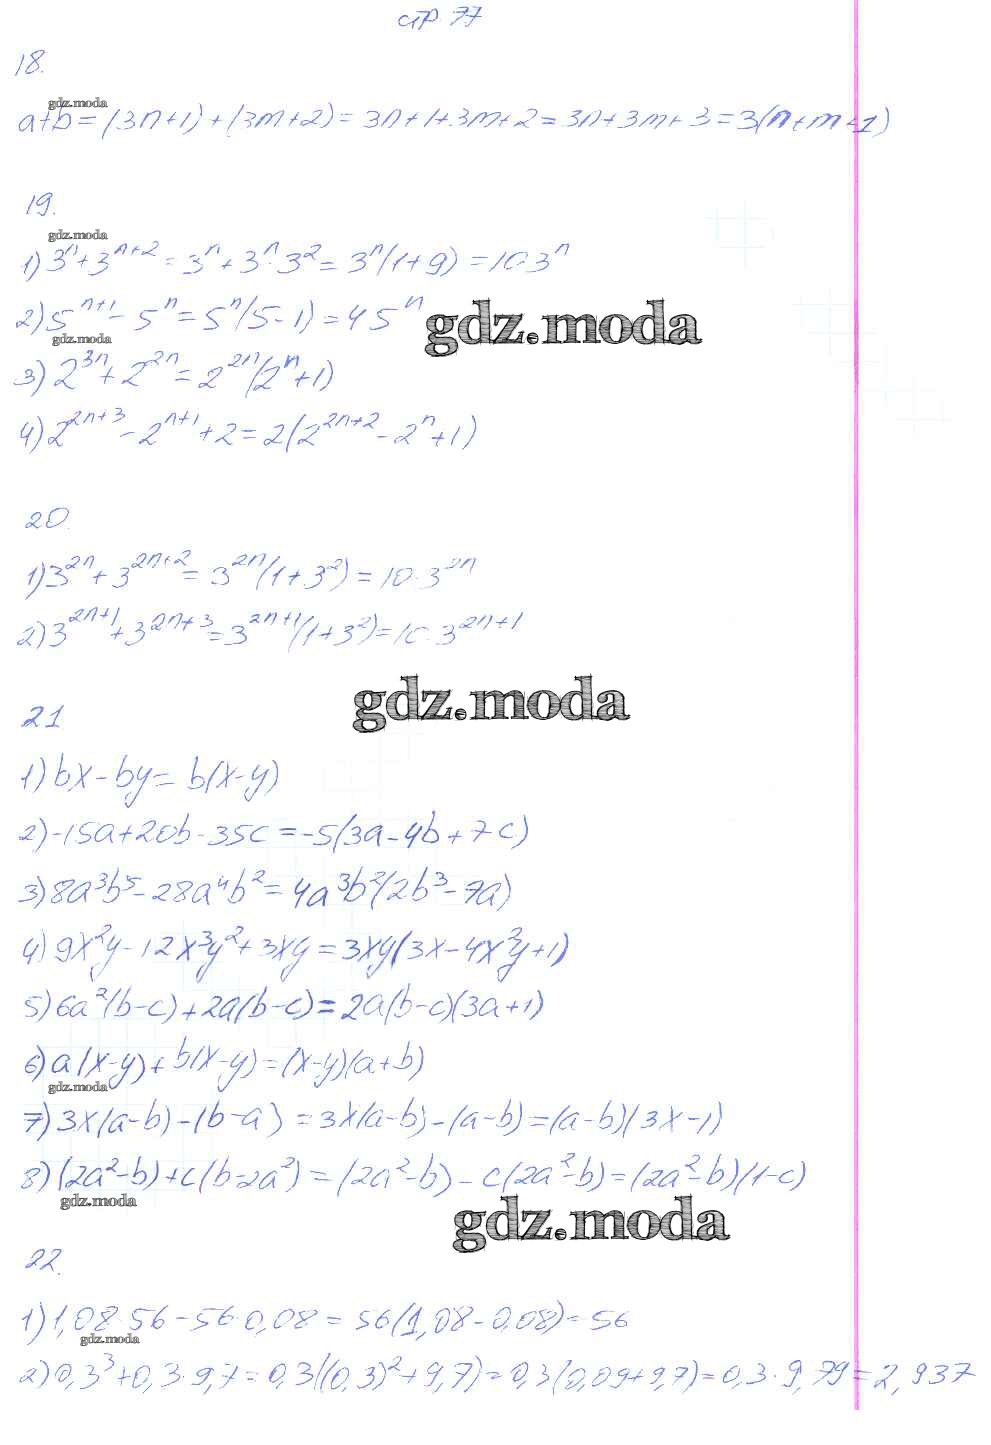 стр. 77
18.
gdz.moda
a+b=(3n+1)+(3m+2)=3n+1+3m+2=3n+3m+3=3(n+m+1)
19.
gdz.moda
1) 3ⁿ+3ⁿ⁺²=3ⁿ+3ⁿ·3²=3ⁿ(1+9)=10·3ⁿ
2) 5ⁿ⁺¹-5ⁿ=5ⁿ(5-1)=4 5ⁿ
gdz.moda
gdz.moda
3) 2³ⁿ+2²ⁿ=2²ⁿ(2ⁿ+1)
4) 2²ⁿ⁺³-2ⁿ⁺¹+2=2(2²ⁿ⁺²-2ⁿ+1)
20.
1) 3²ⁿ+3²ⁿ⁺²=3²ⁿ(1+3²)=10·3²ⁿ
2) 3²ⁿ⁺¹+3²ⁿ⁺³=3²ⁿ⁺¹(1+3²)=10·3²ⁿ⁺¹
gdz.moda
21
1) bx-by=b(x-y)
2) -15a+20b-35c=-5(3a-4b+7c)
3) 8a³b⁵-28a⁴b²=4a³b²(2b³-7a)
4) 9x²y-12x³y²+3xy=3xy(3x-4x²y+1)
5) 6a²(b-c)+2a(b-c)=2a(b-c)(3a+1)
6) a(x-y)+b(x-y)=(x-y)(a+b)
gdz.moda
7) 3x(a-b)-(b-a)=3x(a-b)-(a-b)=(a-b)(3x-1)
8) (2a²-b)+c(b-2a²)=(2a²-b)-c(2a²-b)=(2a²-b)(1-c)
gdz.moda
gdz.moda
22.
1) 1,08·56-56·0,08=56(1,08-0,08)=56
gdz.moda
2) 0,3³+0,3·9,7=0,3((0,3)²+9,7)=0,3(0,09+9,7)=0,3·9,79=2,937